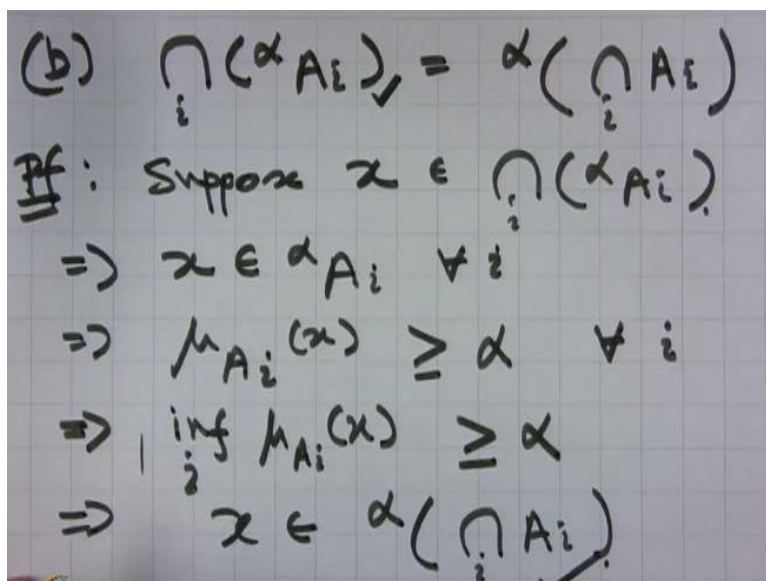 (b) ⋂_i (^α A_i) = ^α(⋂_i A_i)
Pf: Suppose x ∈ ⋂_i (^α A_i)
=> x ∈ ^α A_i ∀ i
=> μ_{A_i}(x) ≥ α ∀ i
=> inf_i μ_{A_i}(x) ≥ α
=> x ∈ ^α(⋂_i A_i)